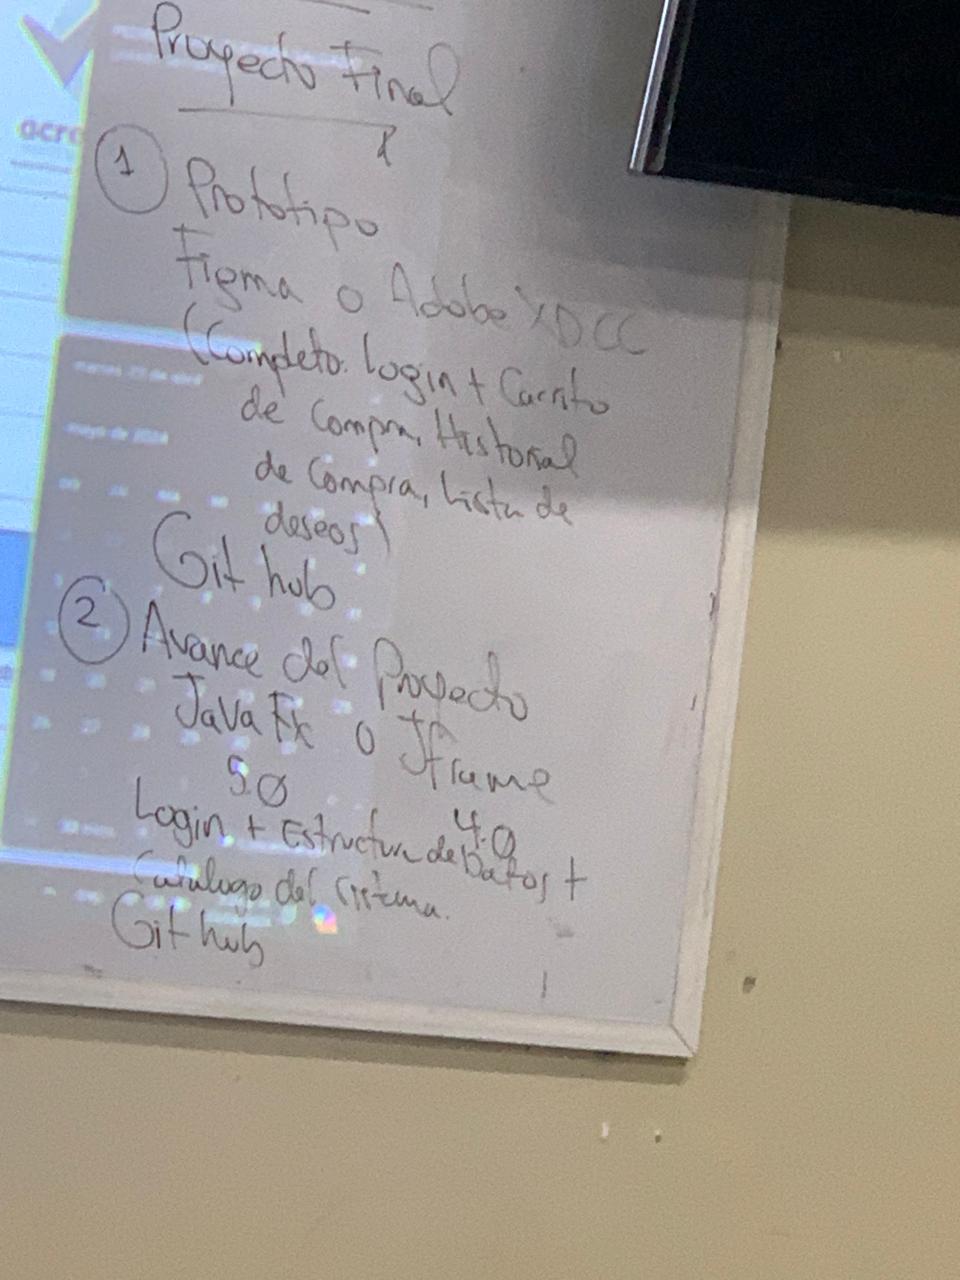 Proyecto Final
acro
1 Prototipo
Figma o Adobe XD CC
(Completo. Login + Carrito
de Compra, Historial
de Compra, Lista de
deseos)
Git hub
mayo de 2024
2 Avance del Proyecto
Java FX o JFrame
5.0
4.0
Login + Estructura de Datos +
Catalogo del Sistema.
Git hub